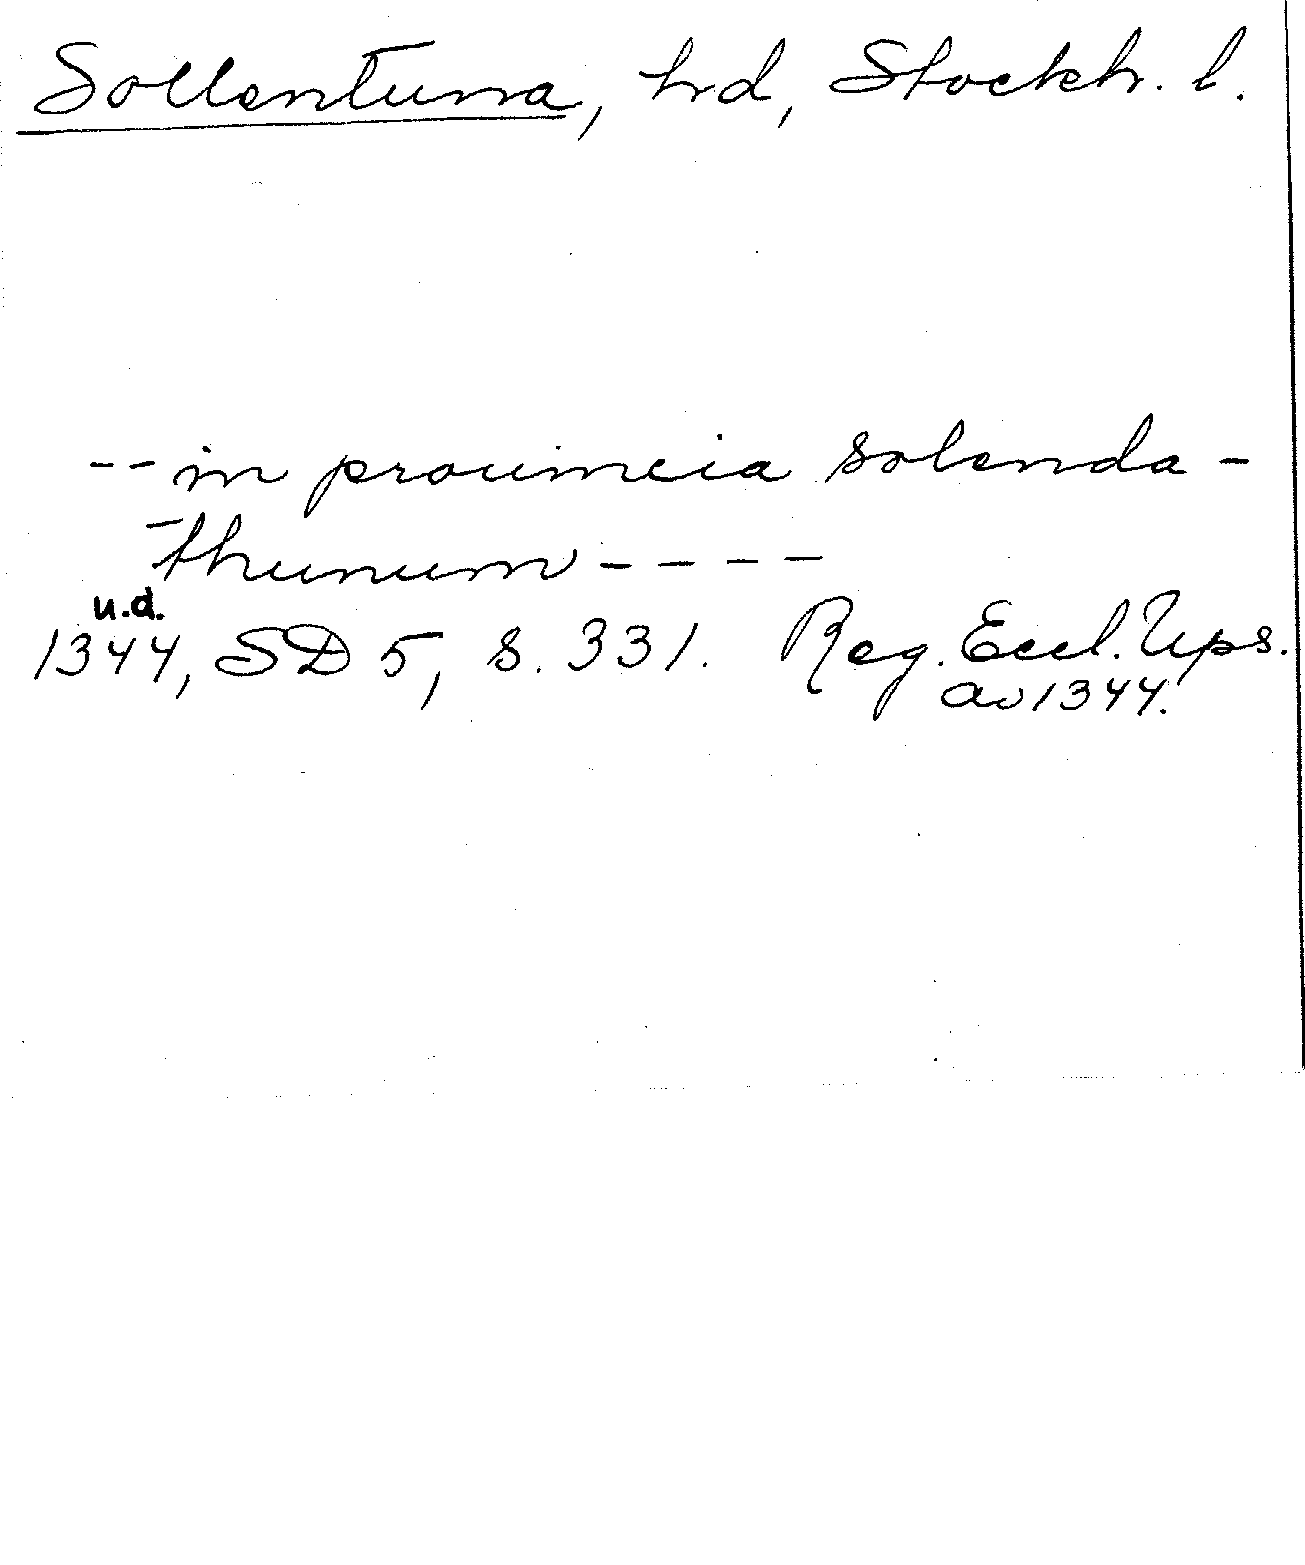 Sollentuna, hd, Stockh. l.
-- in prouincia solenda-
thunum ----
u.d.
1344, SD 5, s. 331. Reg. Eccl. Ups.
av 1344.